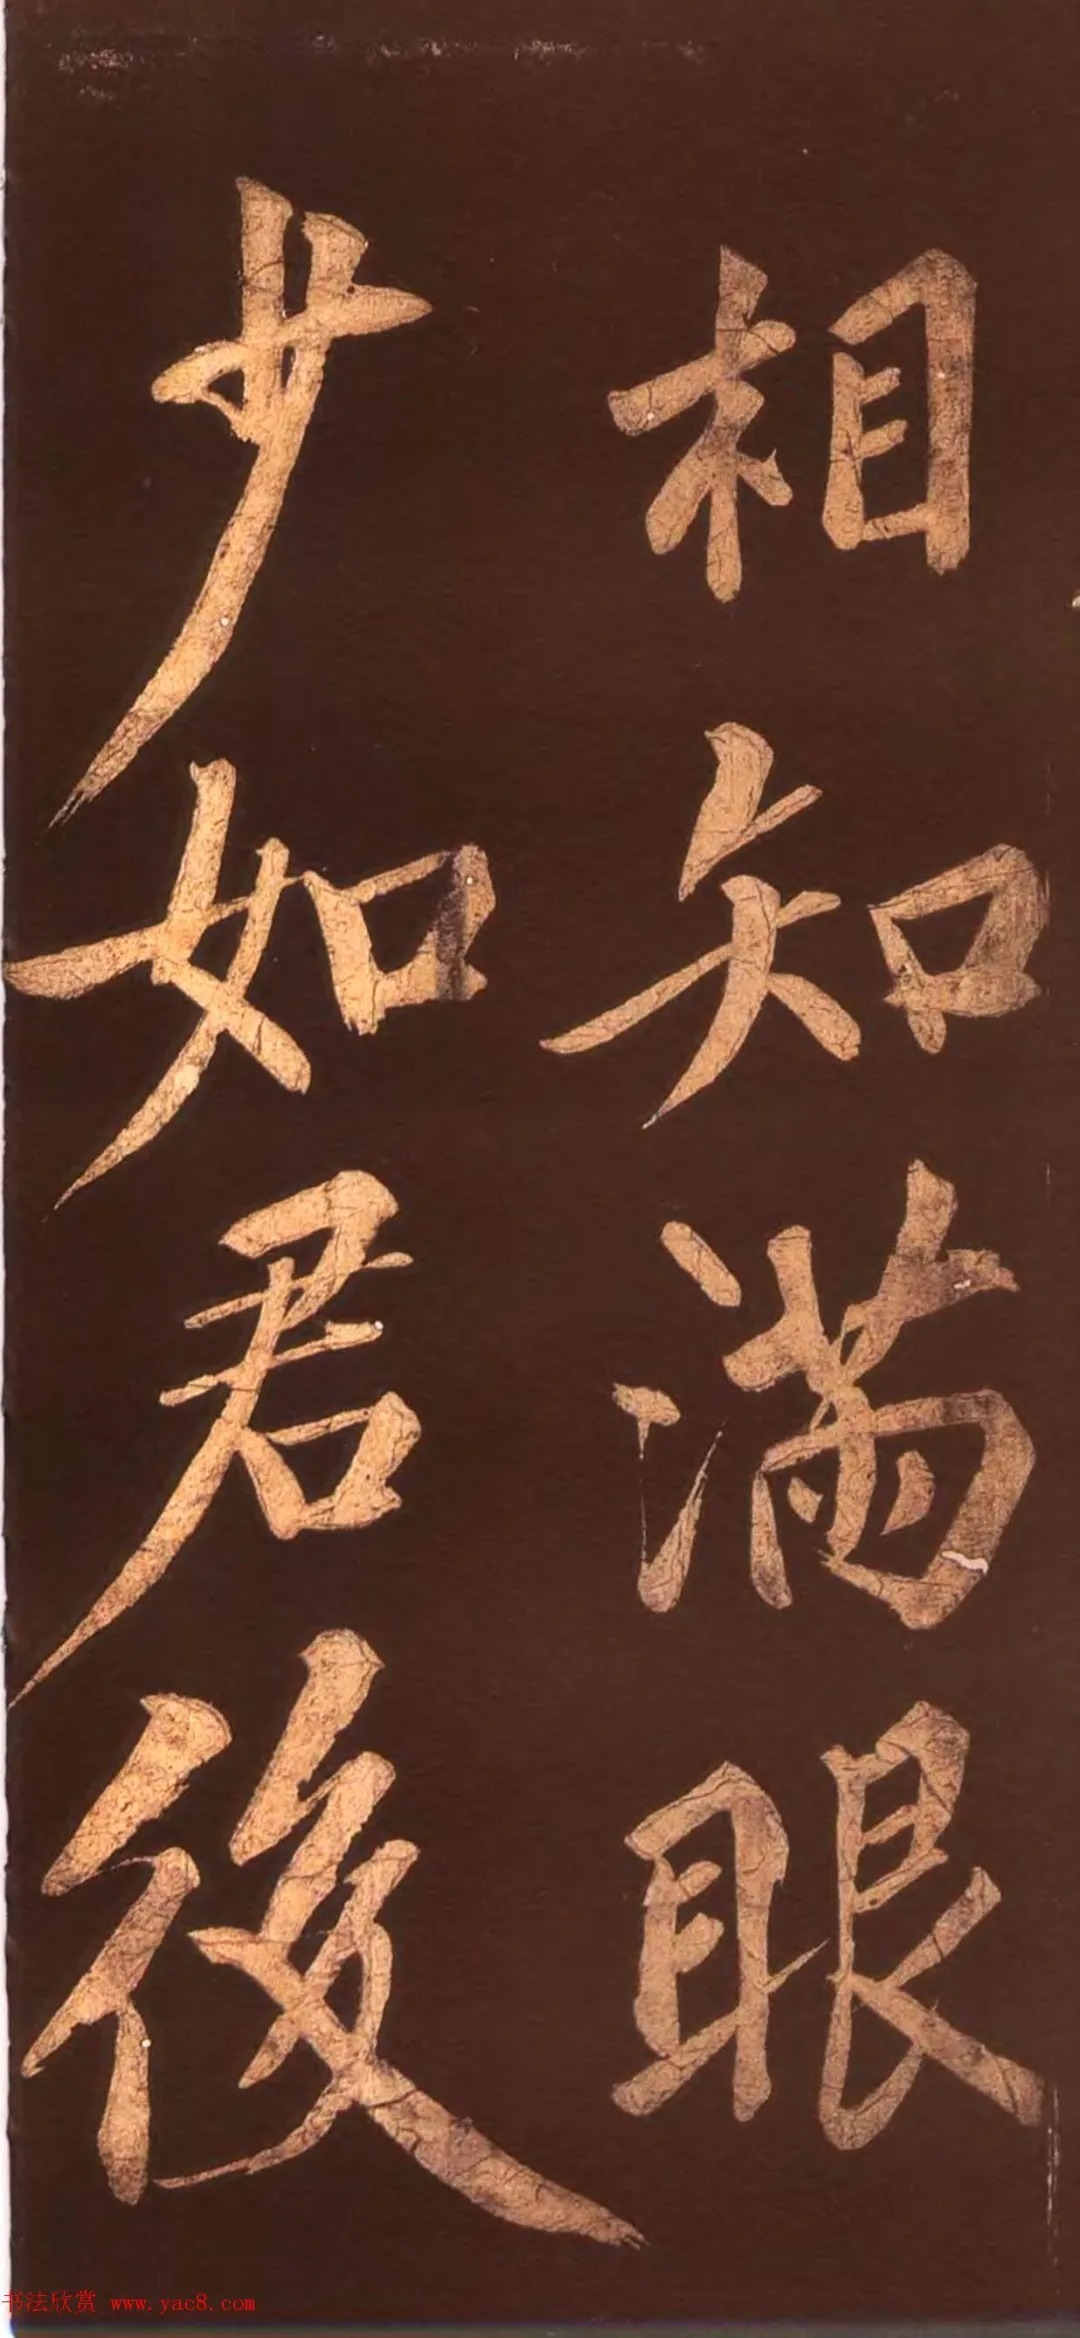 相知满眼
少如君後
书法欣赏 www.yac8.com